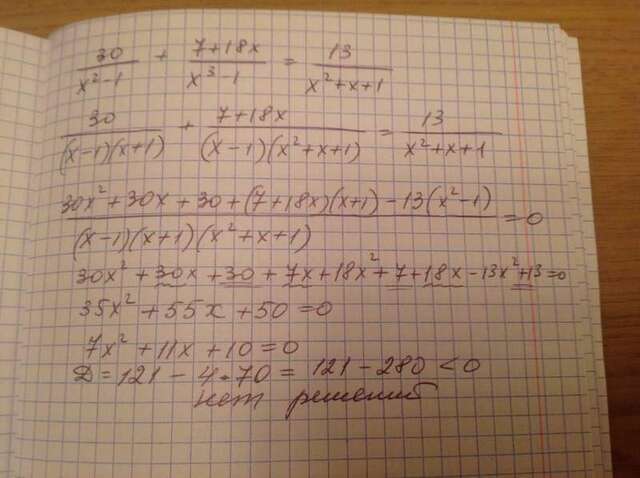 30/(x²-1) + (7+18x)/(x³-1) = 13/(x²+x+1)
30/((x-1)(x+1)) + (7+18x)/((x-1)(x²+x+1)) = 13/(x²+x+1)
(30x²+30x+30+(7+18x)(x+1)-13(x²-1))/((x-1)(x+1)(x²+x+1)) = 0
30x²+30x+30+7x+18x²+7+18x-13x²+13=0
35x²+55x+50=0
7x²+11x+10=0
Д=121-4·70=121-280<0
нет решений